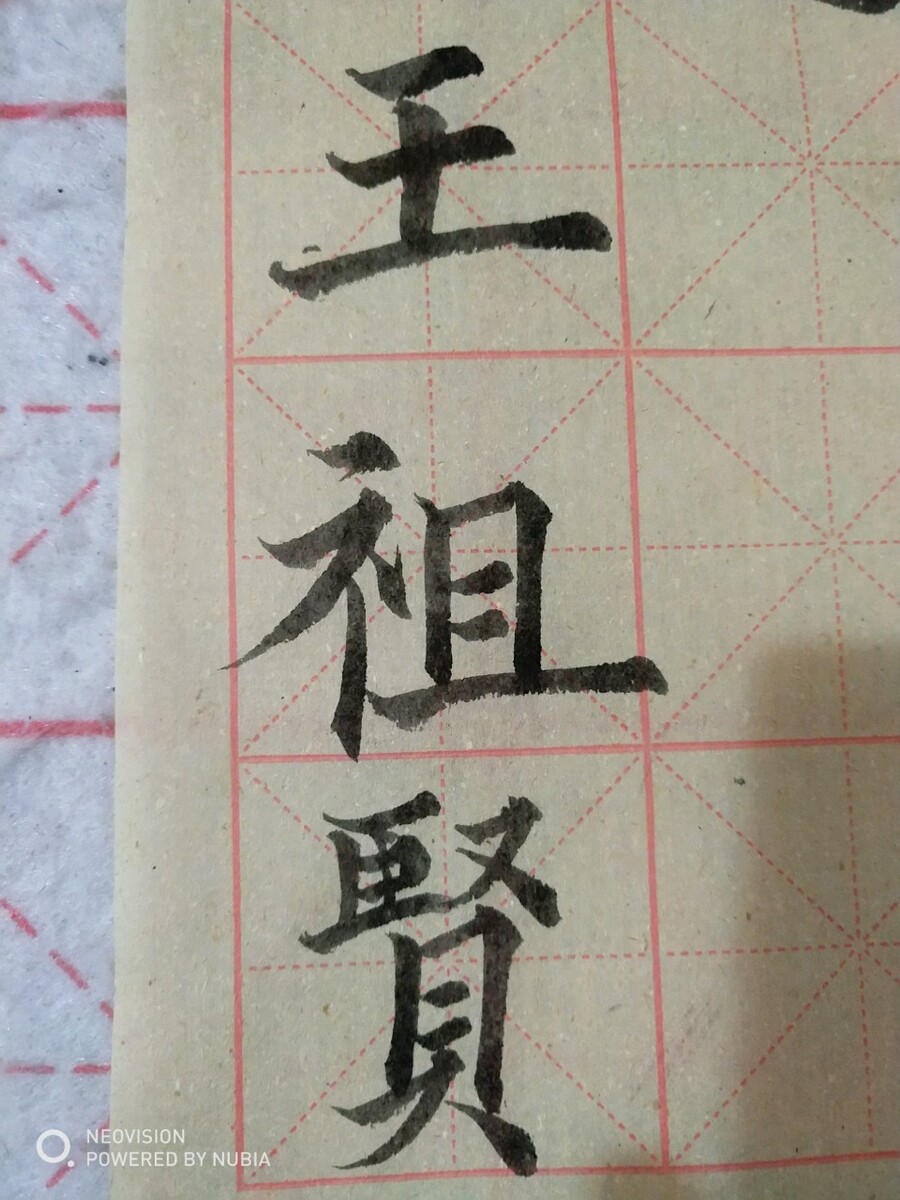 王祖賢
NEOVISION
POWERED BY NUBIA